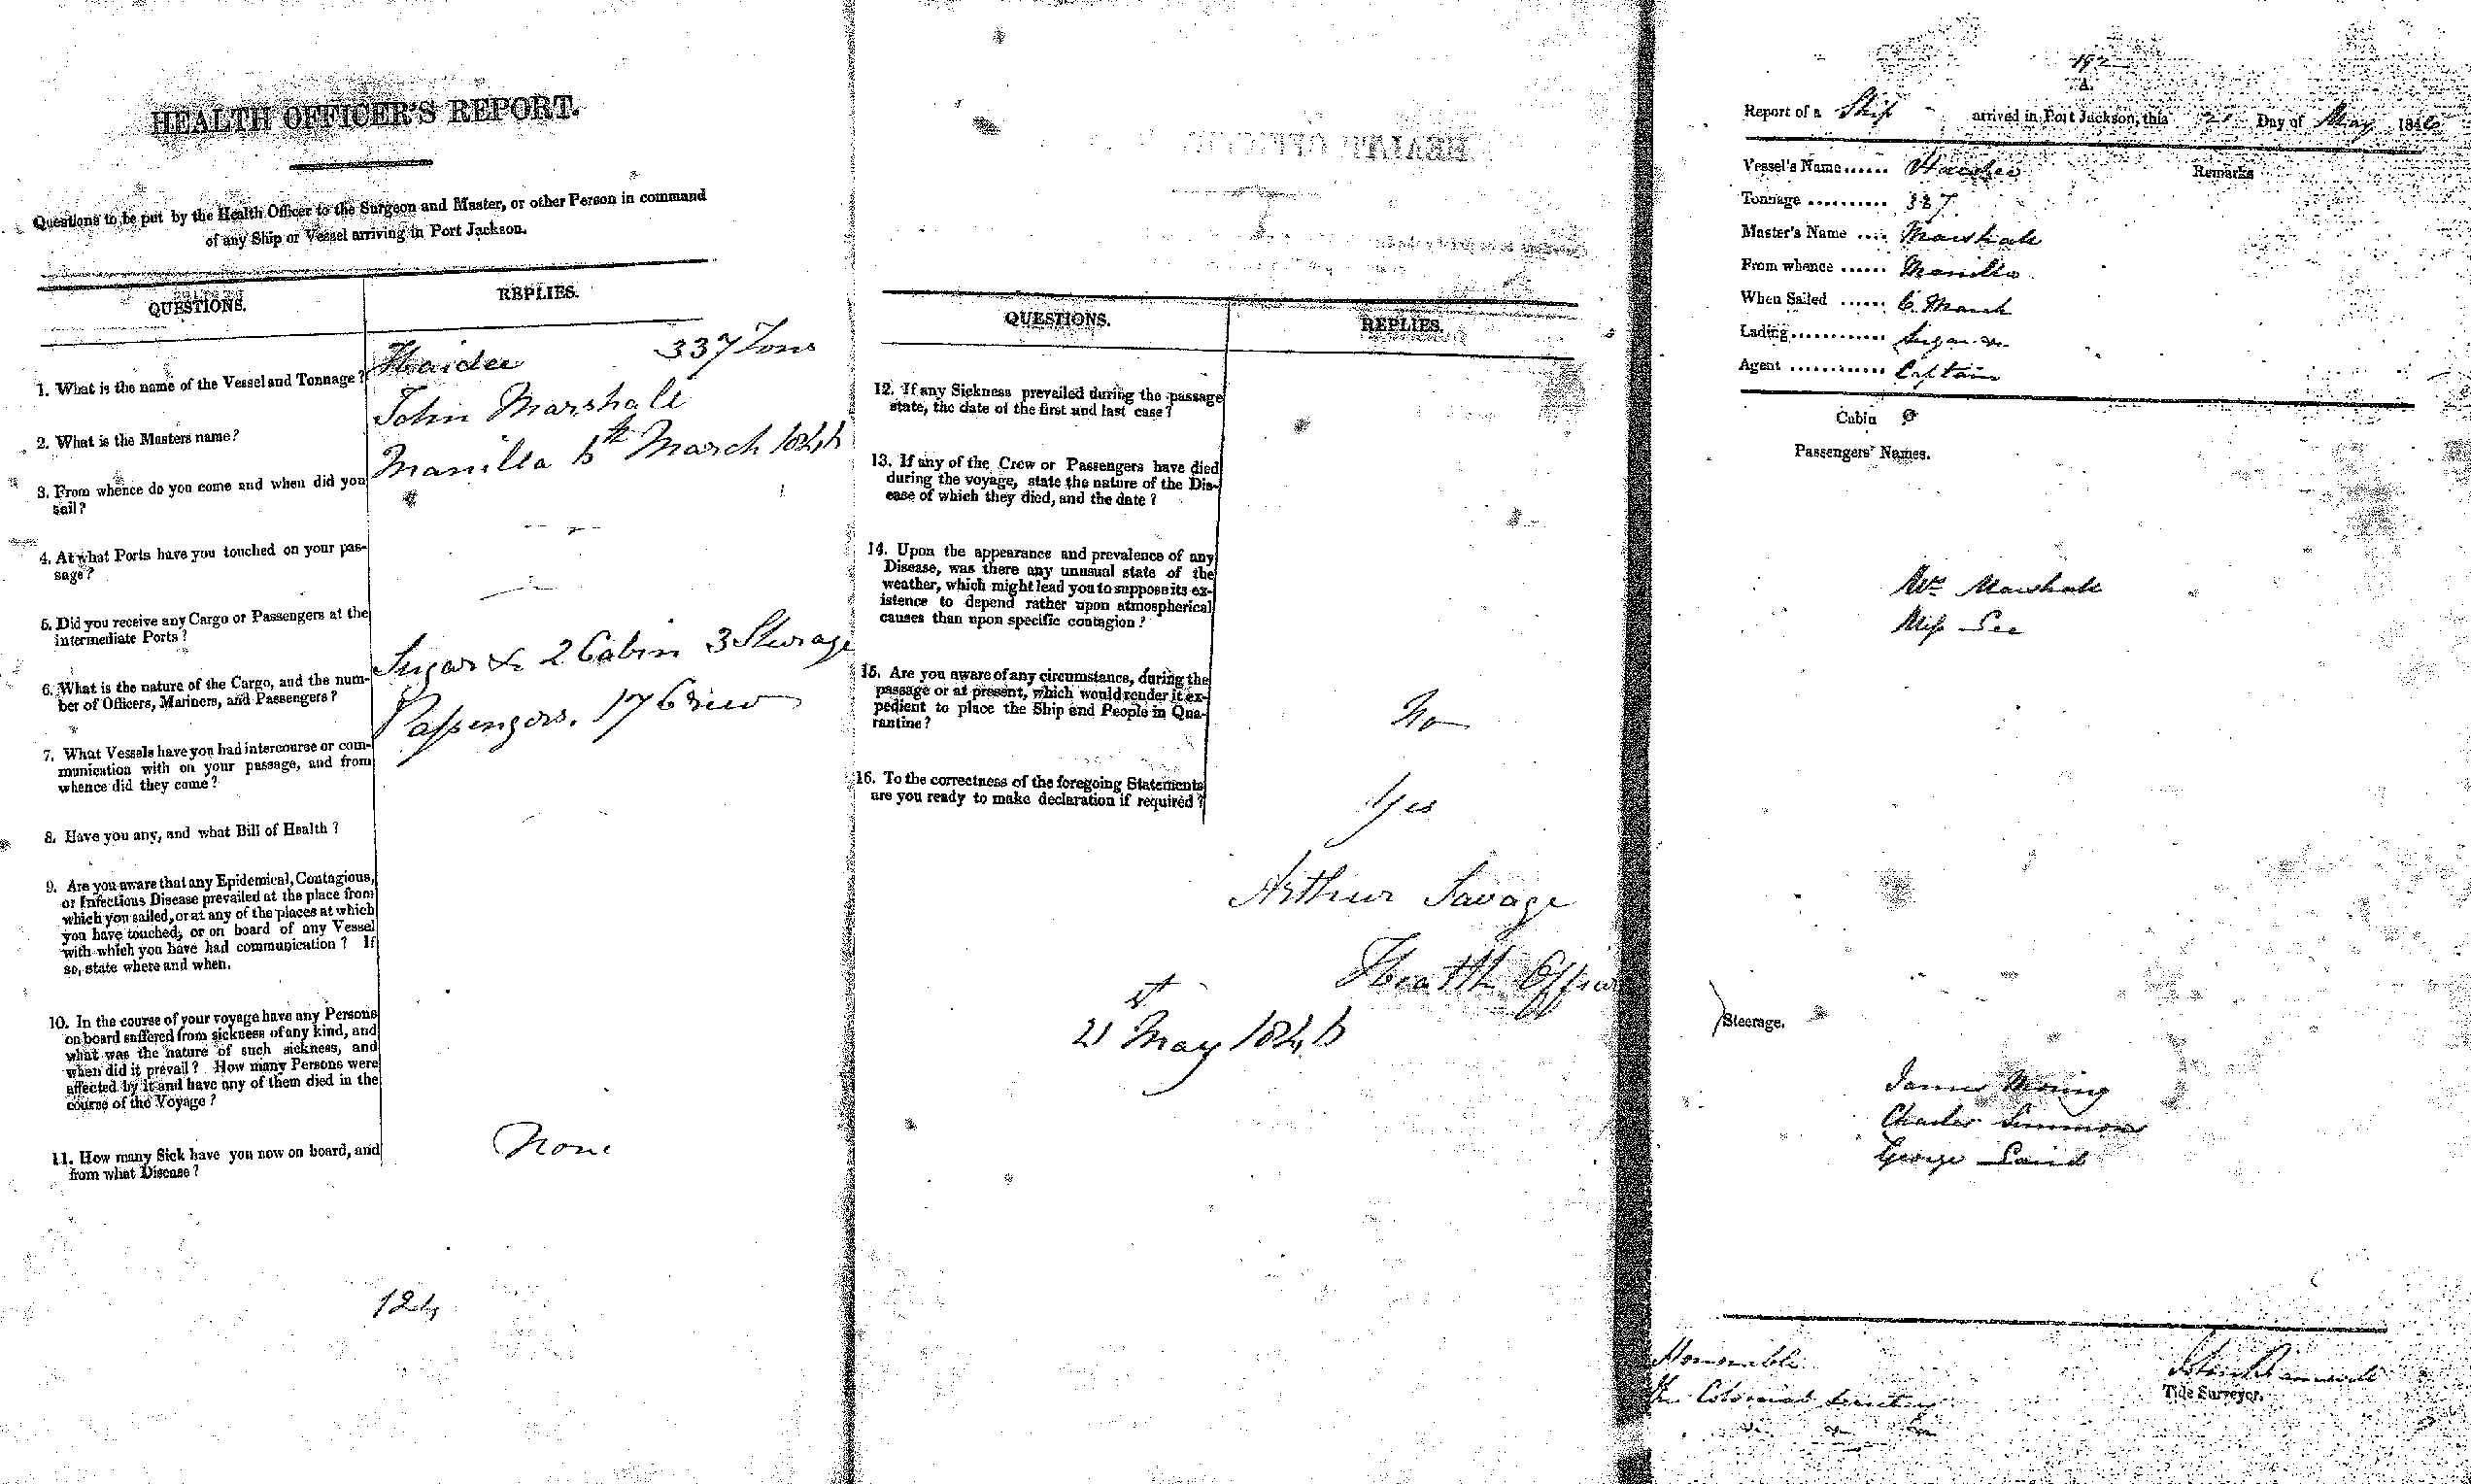 HEALTH OFFICER'S REPORT.
Questions to be put by the Health Officer to the Surgeon and Master, or other Person in command
of any Ship or Vessel arriving in Port Jackson.
QUESTIONS.
REPLIES.
1. What is the name of the Vessel and Tonnage?
Haidee 337 Tons
2. What is the Masters name?
John Marshall
3. From whence do you come and when did you
sail?
Manilla 6th March 1846
4. At what Ports have you touched on your pas-
sage?
5. Did you receive any Cargo or Passengers at the
intermediate Ports?
6. What is the nature of the Cargo, and the num-
ber of Officers, Mariners, and Passengers?
Sugar &c 2 Cabin 3 Sterage
Passengers. 17 Crew
7. What Vessels have you had intercourse or com-
munication with on your passage, and from
whence did they come?
8. Have you any, and what Bill of Health?
9. Are you aware that any Epidemical, Contagious,
or Infectious Disease prevailed at the place from
which you sailed, or at any of the places at which
you have touched, or on board of any Vessel
with which you have had communication? If
so, state where and when.
10. In the course of your voyage have any Persons
on board suffered from sickness of any kind, and
what was the nature of such sickness, and
when did it prevail? How many Persons were
affected by it and have any of them died in the
course of the Voyage?
11. How many Sick have you now on board, and
from what Disease?
None
124
QUESTIONS.
REPLIES.
12. If any Sickness prevailed during the passage
state, the date of the first and last case?
13. If any of the Crew or Passengers have died
during the voyage, state the nature of the Dis-
ease of which they died, and the date?
14. Upon the appearance and prevalence of any
Disease, was there any unusual state of the
weather, which might lead you to suppose its ex-
istence to depend rather upon atmospherical
causes than upon specific contagion?
15. Are you aware of any circumstance, during the
passage or at present, which would render it ex-
pedient to place the Ship and People in Qua-
rantine?
No
16. To the correctness of the foregoing Statements
are you ready to make declaration if required?
Yes
Arthur Savage
Health Officer
21st May 1846
192
A.
Report of a Ship arrived in Port Jackson, this 21 Day of May 1846
Vessel's Name...... Haidee
Remarks
Tonnage .......... 337
Master's Name .... Marshall
From whence ...... Manilla
When Sailed ...... 6 March
Lading............ Sugar &c
Agent ............ Captain
Cabin
Passengers' Names.
Mrs Marshall
Miss Lee
Steerage.
James
Charles Simmons
George Laird
Honorable
The Colonial Secretary
Tide Surveyor.